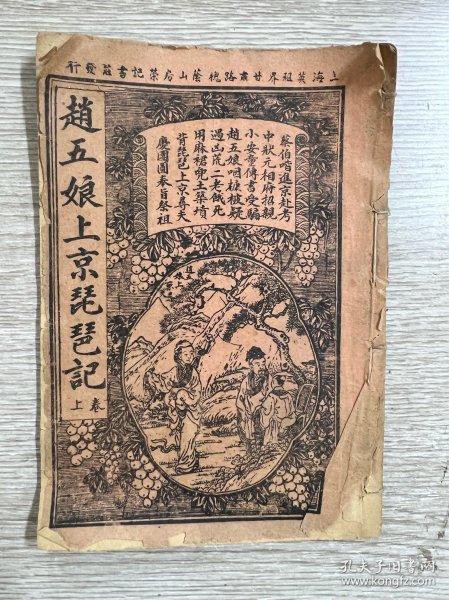 上海英租界甘肅路槐蔭山房榮記書莊發行
蔡伯喈進京赴考
中狀元相府招親
小安童傳書受騙
趙五娘咽糠被疑
遇凶荒二老餓死
用麻裙兜土築墳
背琵琶上京尋夫
慶團圓奉旨祭祖
趙五娘上京琵琶記
卷上
孔夫子旧书网
www.kongfz.com